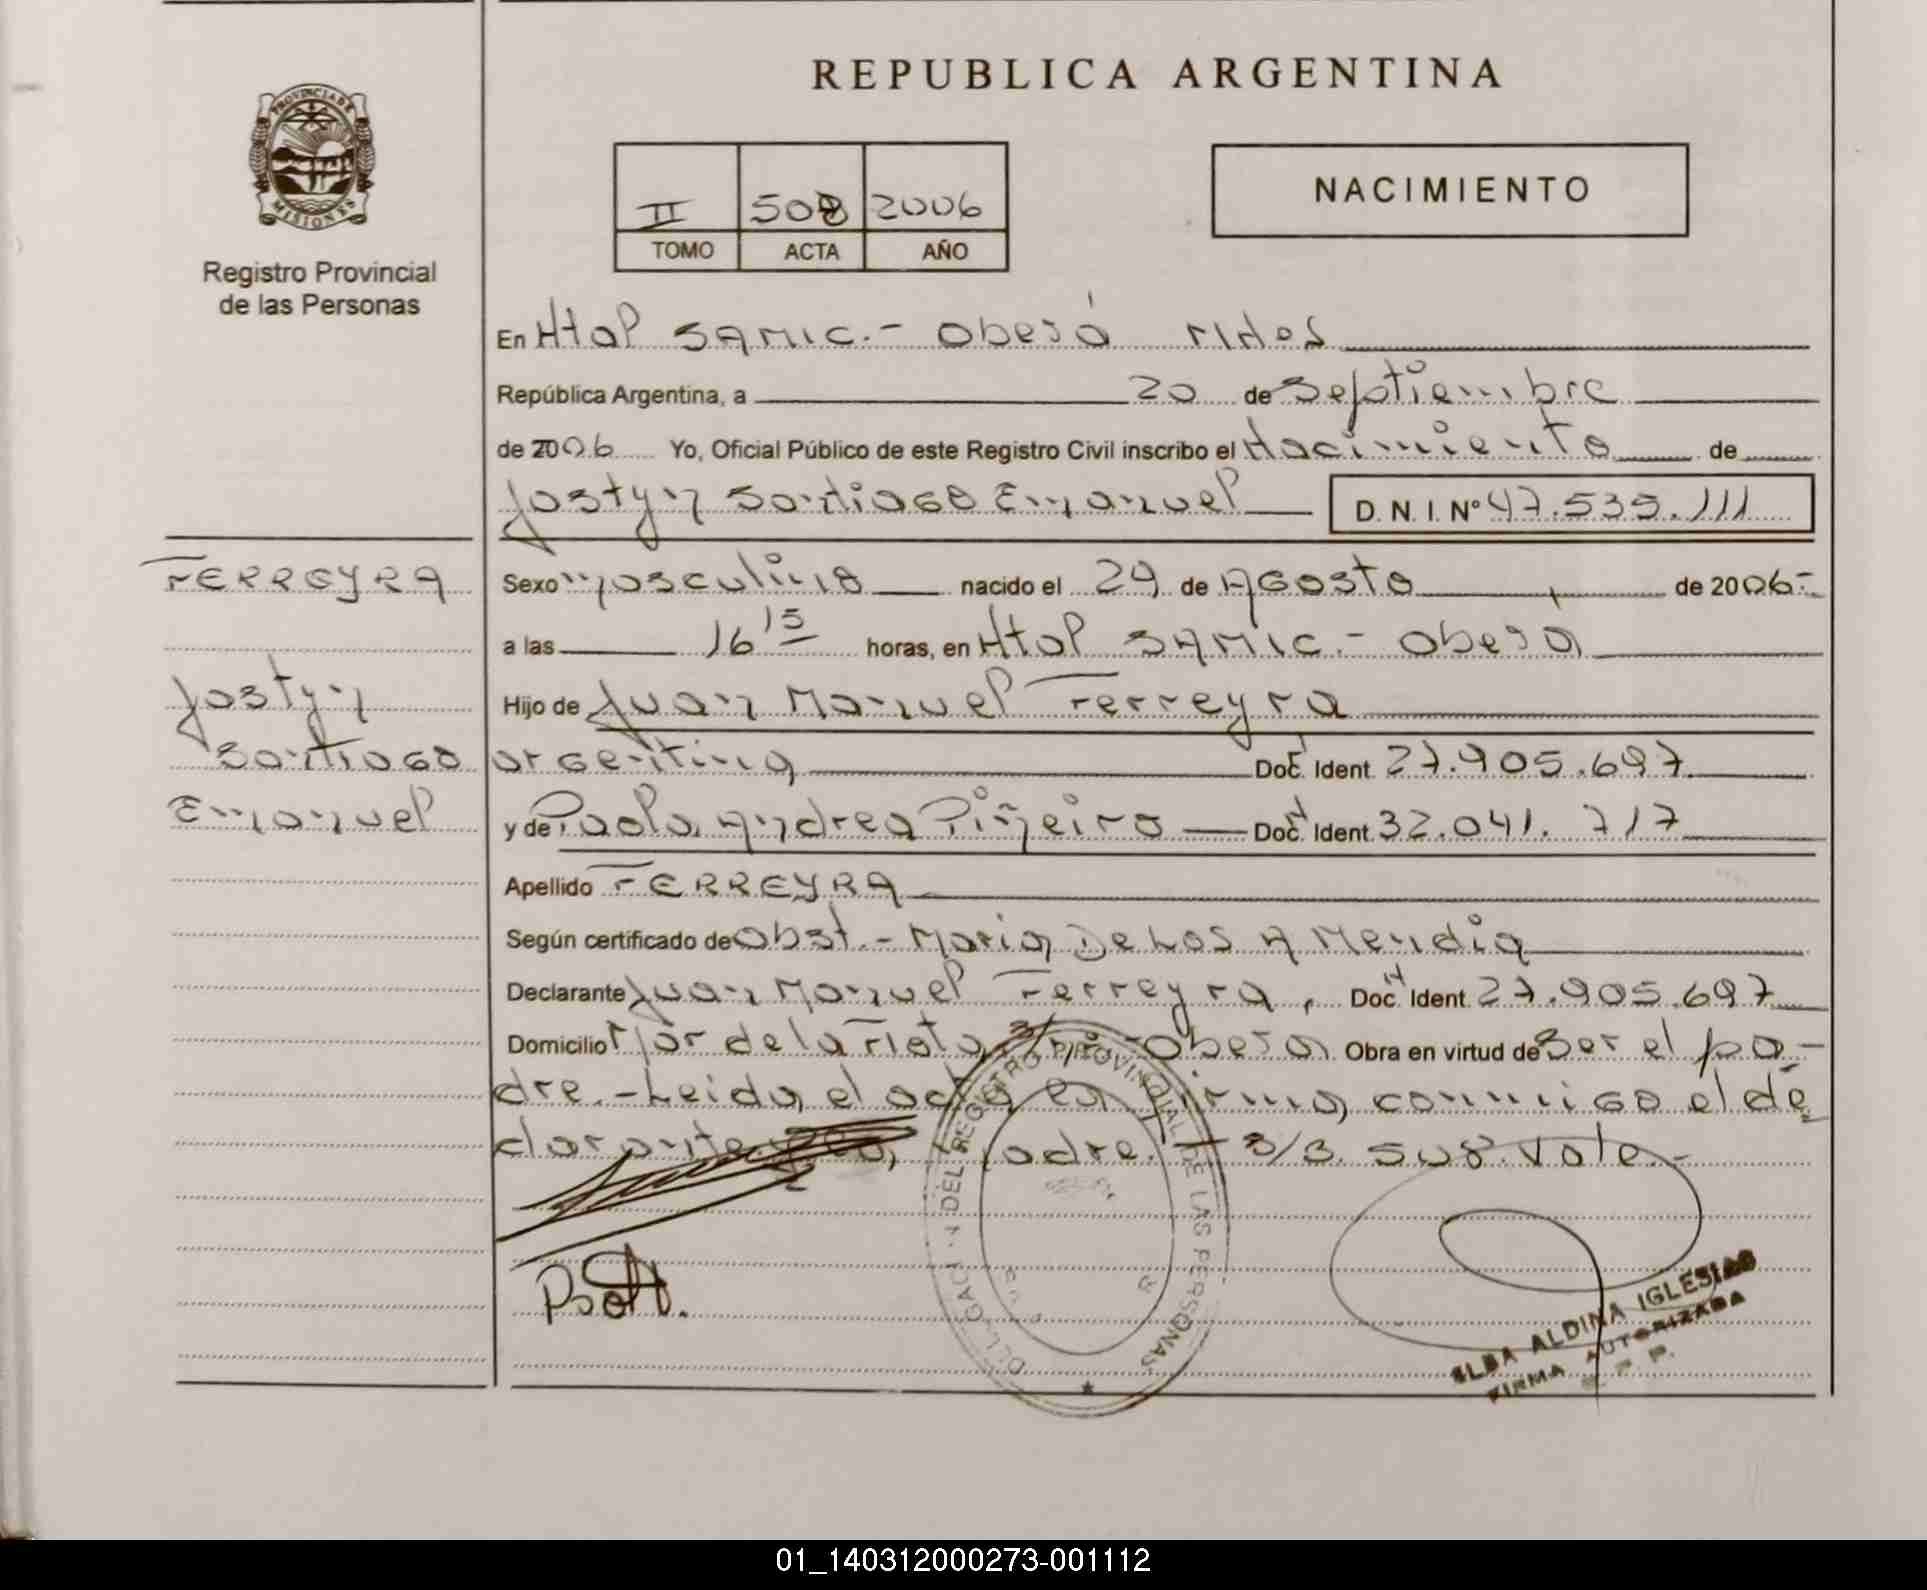 REPUBLICA ARGENTINA
PROVINCIA DE
MISIONES
Registro Provincial
de las Personas
II 508 2006
TOMO ACTA AÑO
NACIMIENTO
En Htal SAMIC.- Oberá Mnes
República Argentina, a 20 de Septiembre
de 2006 Yo, Oficial Público de este Registro Civil inscribo el Nacimiento de
Jostyn Santiago Emanuel D.N.I. Nº 47.535.111
FERREYRA
Sexo masculino nacido el 29 de Agosto de 2006-
a las 16 15 horas, en Htal SAMIC.- Oberá
Jostyn
Hijo de Juan Manuel Ferreyra
Santiago
argentina Doc. Ident. 27.905.697
Emanuel
y de Paola Andrea Piñeiro Doc. Ident. 32.041.717
Apellido FERREYRA
Según certificado de Obst.- Maria De Los A Mendia
Declarante Juan Manuel Ferreyra, Doc. Ident. 27.905.697
Domicilio de la Oberá Obra en virtud de Ser el pa-
dre.- Leida el acta la firma conmigo el de
clarante madre. - 508. Vale.-
DEL REGISTRO PROVINCIAL DE LAS PERSONAS
ELBA ALDINA IGLESIAS
FIRMA AUTORIZADA
01_140312000273-001112